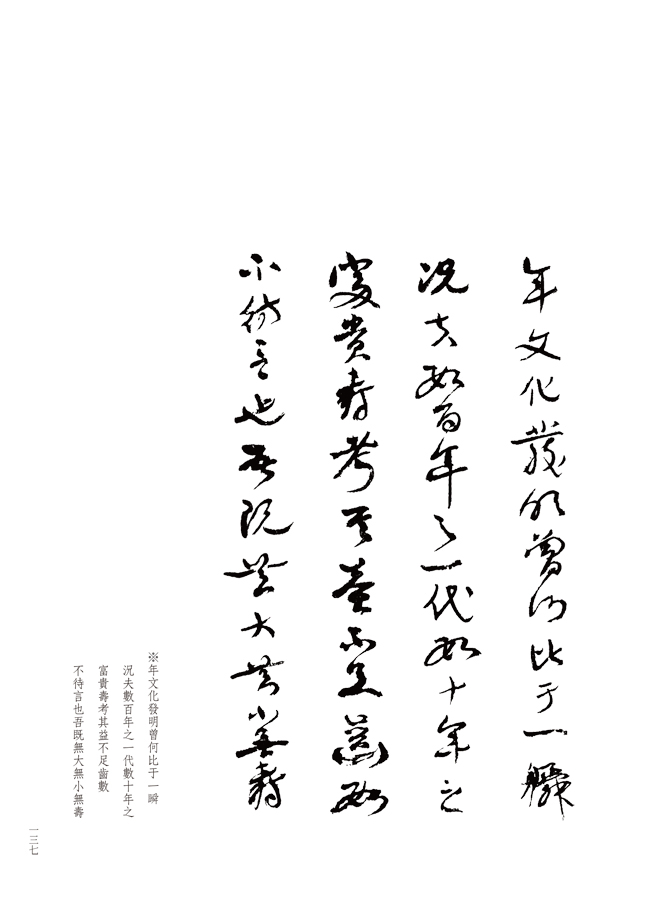 年文化發明曾何比于一瞬
况夫數百年之一代數十年之
富貴壽考其益不足齒數
不待言也吾既無大無小無壽
※年文化發明曾何比于一瞬
況夫數百年之一代數十年之
富貴壽考其益不足齒數
不待言也吾既無大無小無壽
一三七